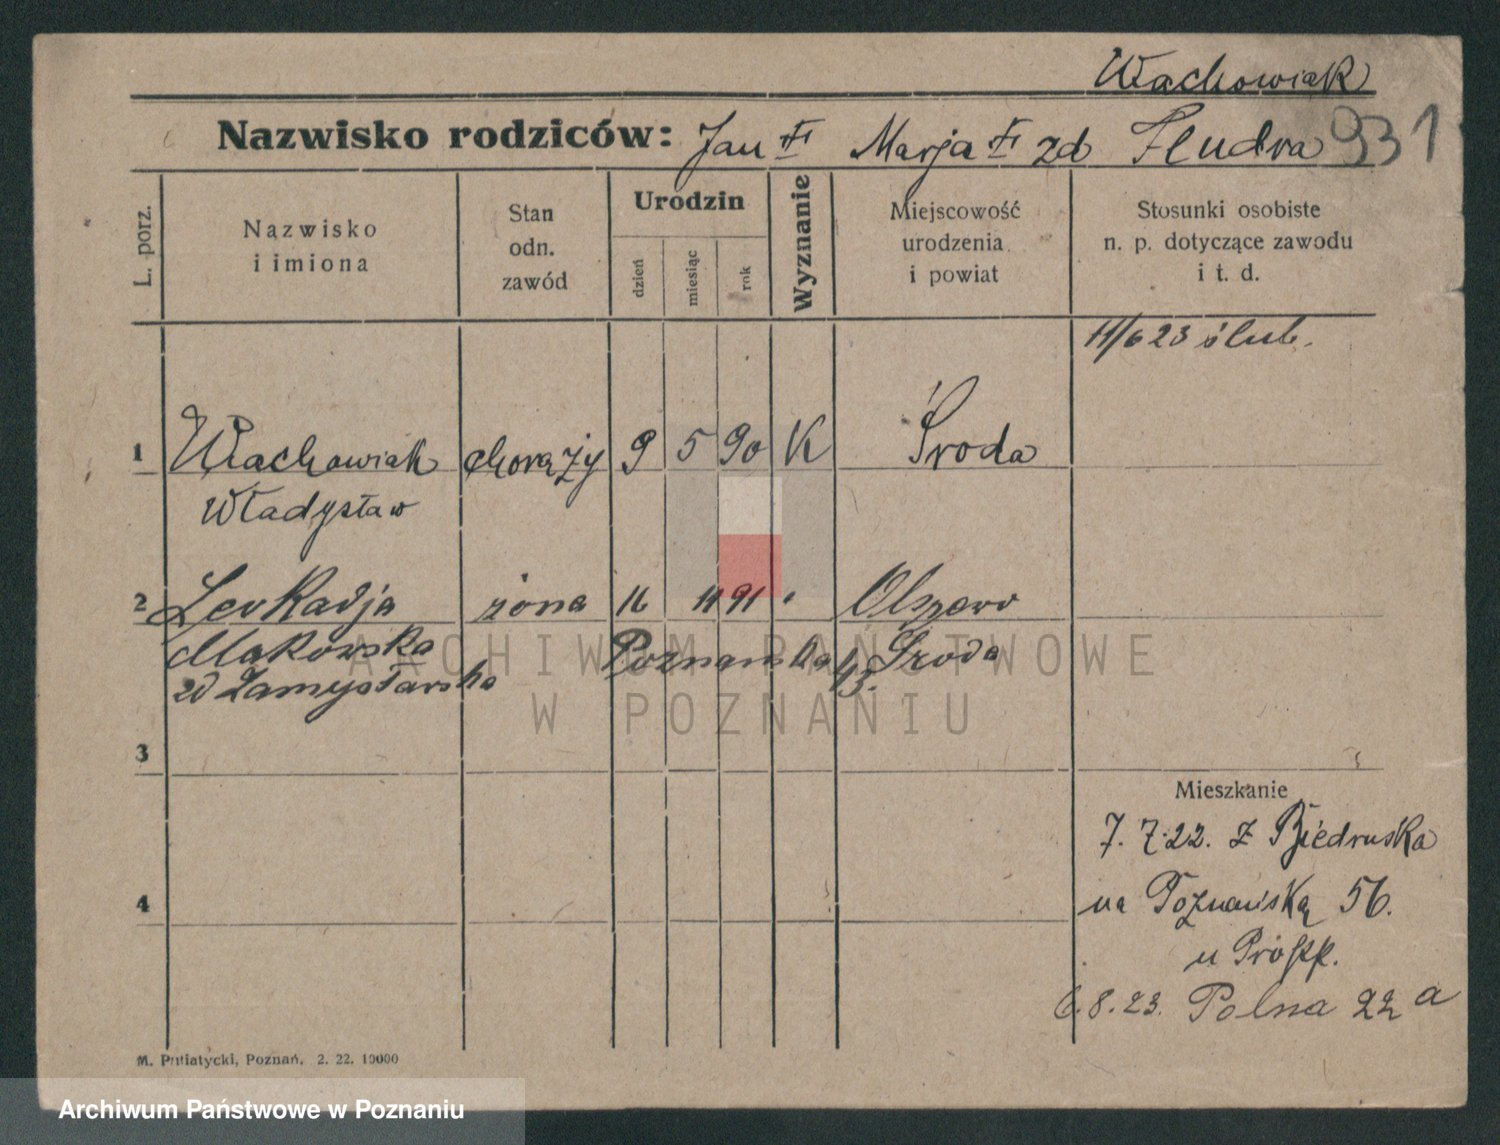 Wachowiak
Nazwisko rodziców: Jan † Marja † zd Fludra 931
L. porz.
Nazwisko
i imiona
Stan
odn.
zawód
Urodzin
dzień
miesiąc
rok
Wyznanie
Miejscowość
urodzenia
i powiat
Stosunki osobiste
n. p. dotyczące zawodu
i t. d.
11/6 23 ślub.
1 Wachowiak chorąży 9 5 90 K Środa
Władysław
2 Leokadja żona 16 11 91 " Olszewo
Makowska Poznańska 43. Środa
zd Zamysłowska
ARCHIWUM PAŃSTWOWE
W POZNANIU
3
Mieszkanie
7. 7.22. z Biedruska
4
na Poznańską 56.
u
6.8.23. Polna 22 a
M. Putiatycki, Poznań, 2. 22. 10000
Archiwum Państwowe w Poznaniu